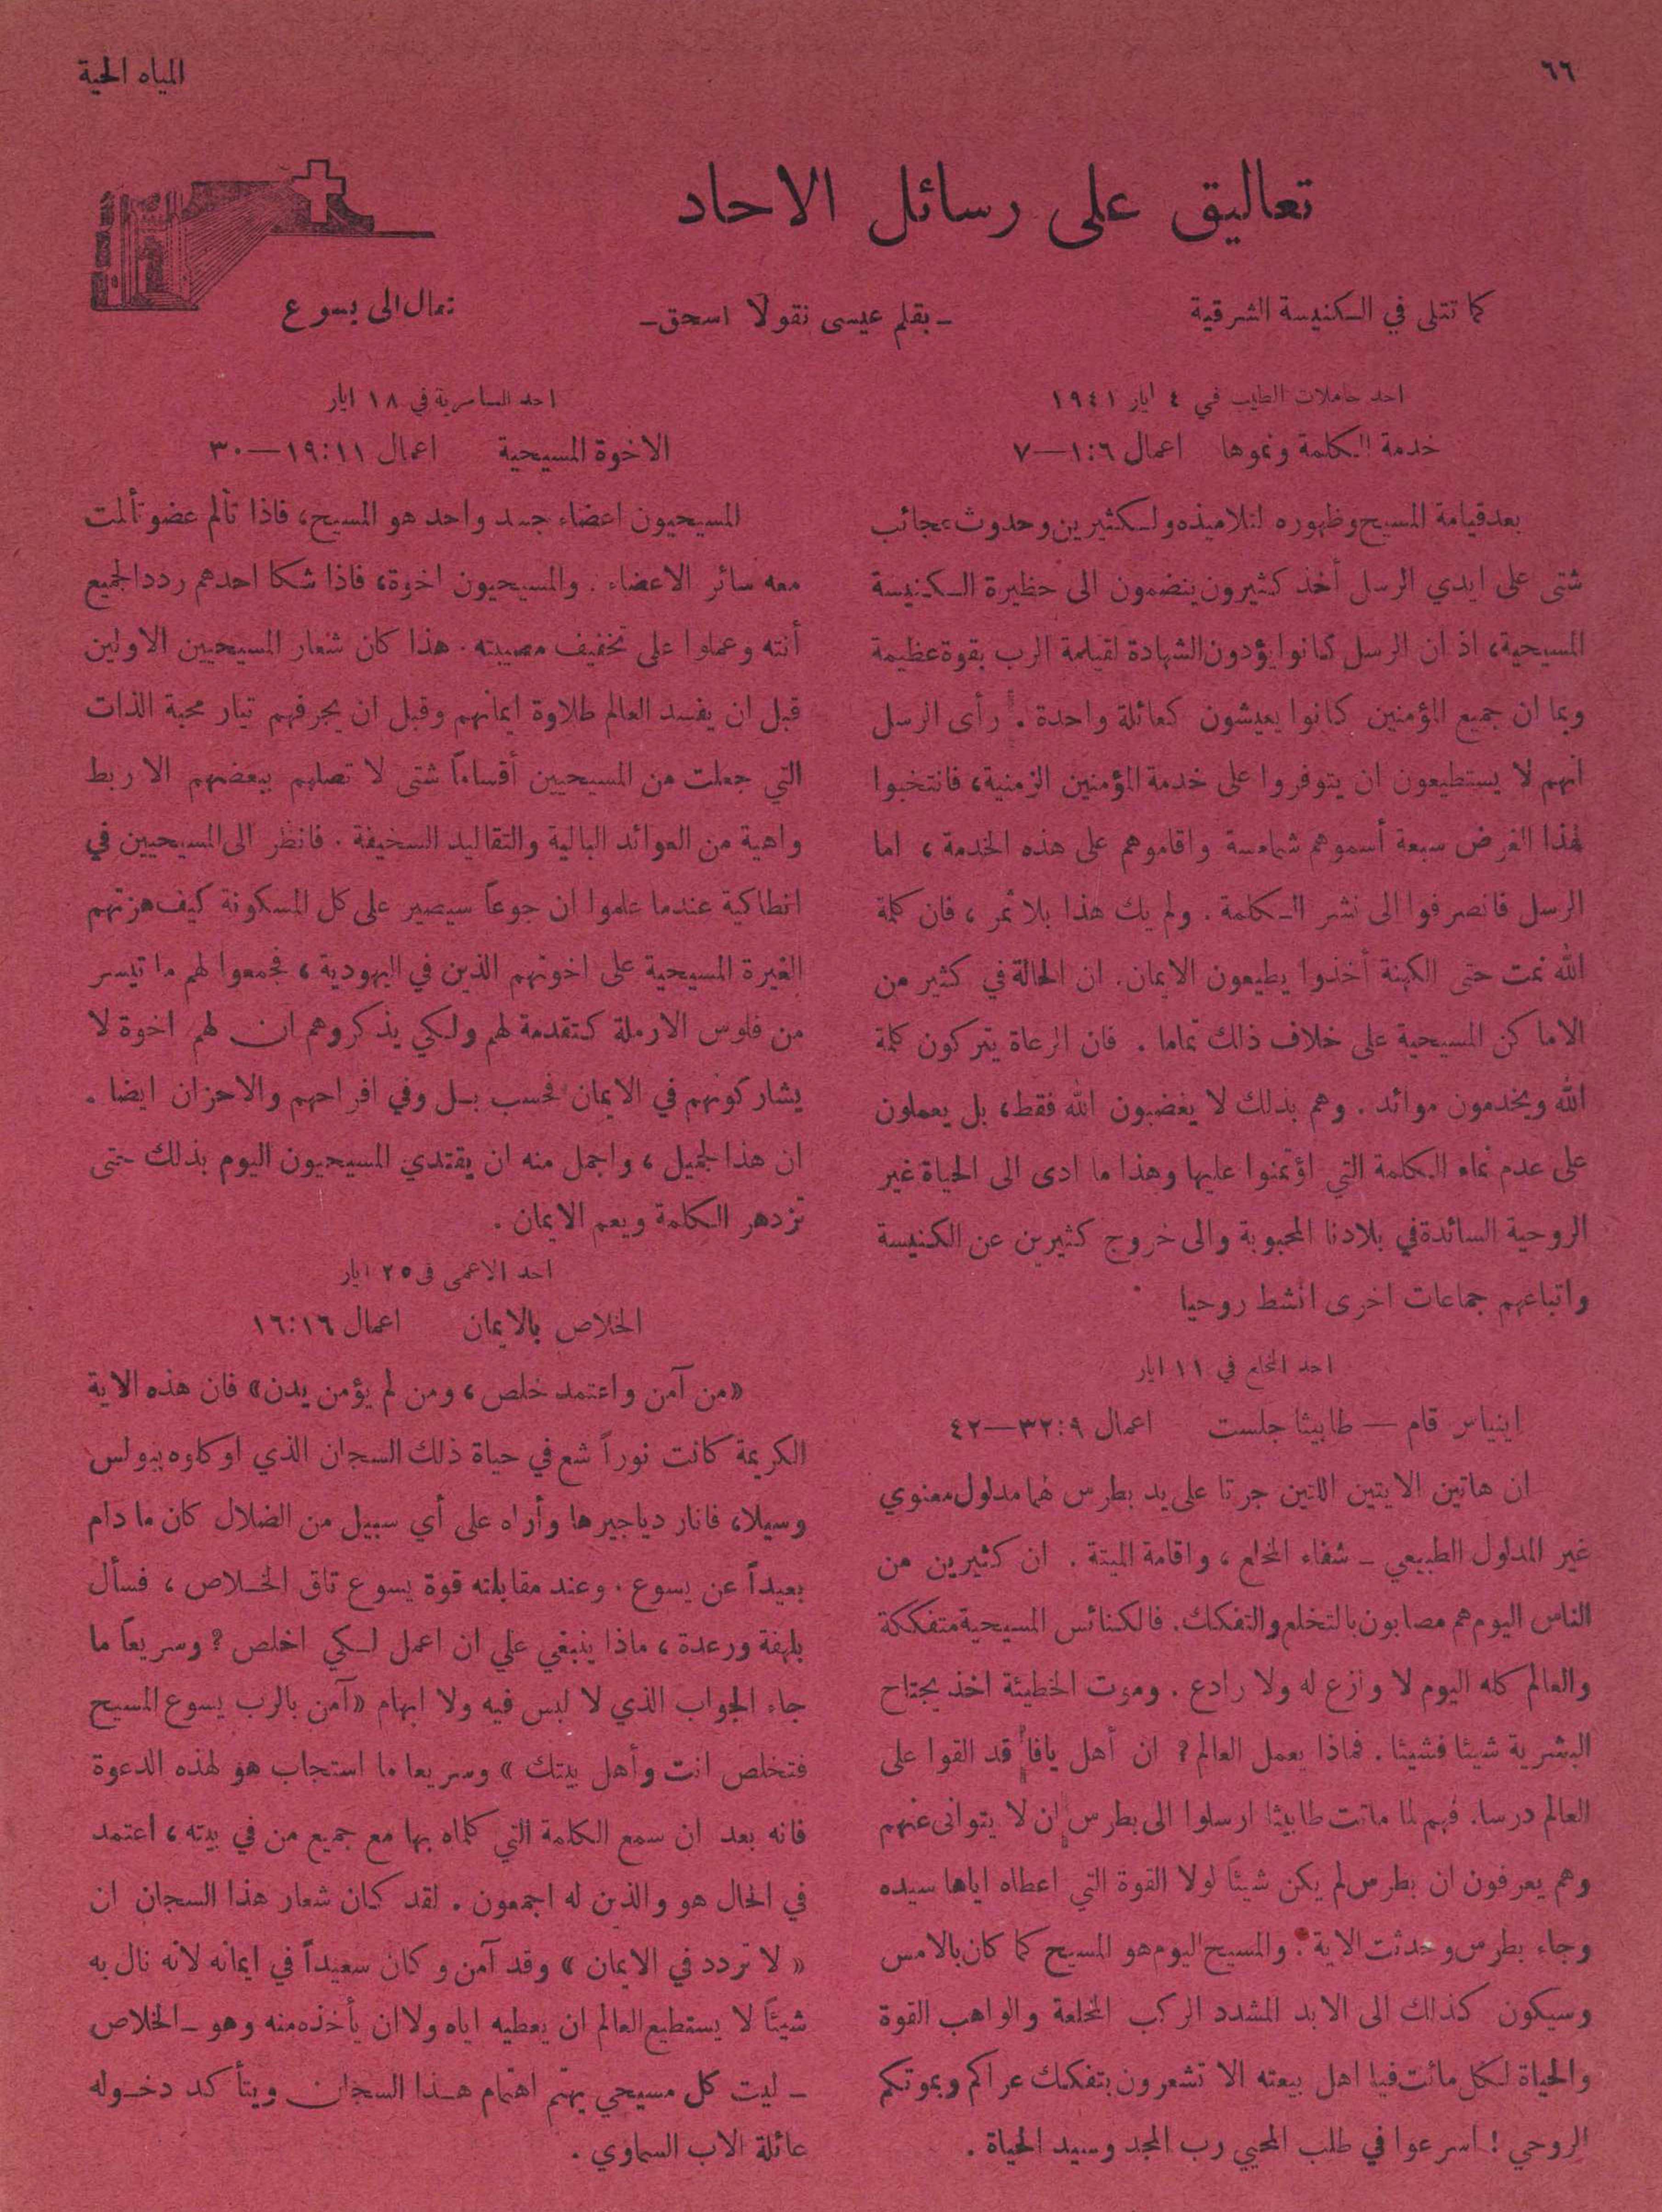 ٦٦
المياه الحية
تعاليق على رسائل الاحاد
كما تتلى في الكنيسة الشرقية
ـ بقلم عيسى نقولا اسحق ـ
تعال الى يسوع
احد حاملات الطيب في ٤ ايار ١٩٤١
خدمة الكلمة ونموها اعمال ٦:١—٧
بعد قيامة المسيح وظهوره لتلاميذه ولكثيرين وحدوث عجائب
شتى على ايدي الرسل أخذ كثيرون ينضمون الى حظيرة الكنيسة
المسيحية، اذ ان الرسل كانوا يؤدون الشهادة لقيامة الرب بقوة عظيمة
وبما ان جميع المؤمنين كانوا يعيشون كعائلة واحدة. رأى الرسل
انهم لا يستطيعون ان يتوفروا على خدمة المؤمنين الزمنية، فانتخبوا
لهذا الغرض سبعة أسموهم شمامسة واقاموهم على هذه الخدمة، اما
الرسل فانصرفوا الى نشر الكلمة. ولم يك هذا بلا ثمر، فان كلمة
الله نمت حتى الكهنة أخذوا يطيعون الايمان. ان الحالة في كثير من
الاماكن المسيحية على خلاف ذلك تماما. فان الرعاة يتركون كلمة
الله ويخدمون موائد. وهم بذلك لا يغضبون الله فقط، بل يعملون
على عدم نماء الكلمة التي اؤتمنوا عليها وهذا ما ادى الى الحياة غير
الروحية السائدة في بلادنا المحبوبة والى خروج كثيرين عن الكنيسة
واتباعهم جماعات اخرى انشط روحيا
احد المخلع في ١١ ايار
اينياس قام — طابيثا جلست اعمال ٩:٣٢—٤٢
ان هاتين الايتين اللتين جرتا على يد بطرس لهما مدلول معنوي
غير المدلول الطبيعي ـ شفاء المخلع، واقامة الميتة. ان كثيرين من
الناس اليوم هم مصابون بالتخلع والتفكك. فالكنائس المسيحية متفككة
والعالم كله اليوم لا وازع له ولا رادع. وموت الخطيئة اخذ يجتاح
البشرية شيئا فشيئا. فماذا يعمل العالم؟ ان أهل يافا قد القوا على
العالم درسا. فهم لما ماتت طابيثا ارسلوا الى بطرس ان لا يتوانى عنهم
وهم يعرفون ان بطرس لم يكن شيئاً لولا القوة التي اعطاه اياها سيده
وجاء بطرس وحدثت الاية. والمسيح اليوم هو المسيح كما كان بالامس
وسيكون كذلك الى الابد المشدد الركب المخلعة والواهب القوة
والحياة لكل مائت فيا اهل بيعته الا تشعرون بتفكك عراكم وبموتكم
الروحي! اسرعوا في طلب المحيي رب المجد وسيد الحياة.
احد السامرية في ١٨ ايار
الاخوة المسيحية اعمال ١١:١٩—٣٠
المسيحيون اعضاء جسد واحد هو المسيح، فاذا تألم عضو تألمت
معه سائر الاعضاء. والمسيحيون اخوة، فاذا شكا احدهم ردد الجميع
أنته وعملوا على تخفيف مصيبته. هذا كان شعار المسيحيين الاولين
قبل ان يفسد العالم طلاوة ايمانهم وقبل ان يجرفهم تيار محبة الذات
التي جعلت من المسيحيين أقساماً شتى لا تصلهم ببعضهم الا ربط
واهية من العوائد البالية والتقاليد السخيفة. فانظر الى المسيحيين في
انطاكية عندما علموا ان جوعاً سيصير على كل المسكونة كيف هزتهم
الغيرة المسيحية على اخوتهم الذين في اليهودية، فجمعوا لهم ما تيسر
من فلوس الارملة كتقدمة لهم ولكي يذكروهم ان لهم اخوة لا
يشاركونهم في الايمان فحسب بل وفي افراحهم والاحزان ايضا.
ان هذا لجميل، واجمل منه ان يقتدي المسيحيون اليوم بذلك حتى
تزدهر الكلمة ويعم الايمان.
احد الاعمى في ٢٥ ايار
الخلاص بالايمان اعمال ١٦:١٦
«من آمن واعتمد خلص، ومن لم يؤمن يدن» فان هذه الاية
الكريمة كانت نوراً شع في حياة ذلك السجان الذي اوكلوه ببولس
وسيلا، فانار دياجيرها وأراه على أي سبيل من الضلال كان ما دام
بعيداً عن يسوع. وعند مقابلته قوة يسوع تاق الخلاص، فسأل
بلهفة ورعدة، ماذا ينبغي علي ان اعمل لكي اخلص؟ وسريعاً ما
جاء الجواب الذي لا لبس فيه ولا ابهام «آمن بالرب يسوع المسيح
فتخلص انت وأهل بيتك» وسريعا ما استجاب هو لهذه الدعوة
فانه بعد ان سمع الكلمة التي كلماه بها مع جميع من في بيته، اعتمد
في الحال هو والذين له اجمعون. لقد كان شعار هذا السجان ان
« لا تردد في الايمان » وقد آمن وكان سعيداً في ايمانه لانه نال به
شيئاً لا يستطيع العالم ان يعطيه اياه ولا ان يأخذه منه وهو ـ الخلاص
ـ ليت كل مسيحي يهتم اهتمام هذا السجان ويتأكد دخوله
عائلة الاب السماوي.